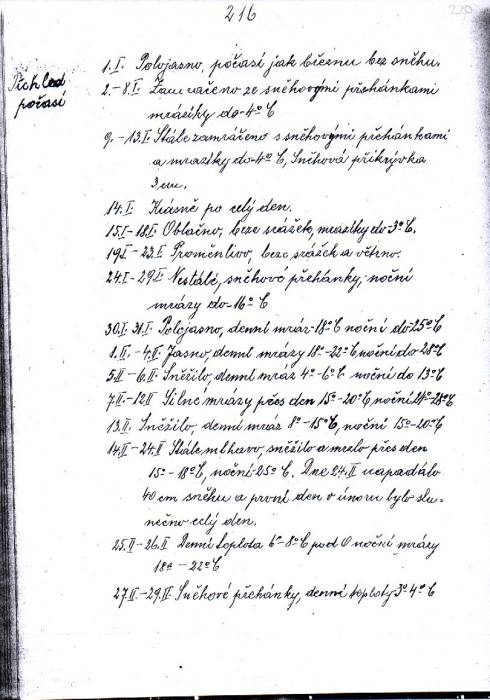 216
220
Přehled
počasí
1. I. Polojasno, počasí jak březnu bez sněhu.
2.-8. I. Zamračeno ze sněhovými přehánkami
mrazíky do -4°C
9.-13. I. Stále zamračeno s sněhovými přehánkami
a mrazíky do -4°C, Sněhová přikrývka
3 cm.
14. I. Krásně po celý den.
15. I.-18. I. Oblačno, beze srážek, mrazíky do -3°C.
19. I.-23. I. Proměnlivo, beze srážek a větrno.
24. I.-29. I. Nestálé, sněhové přehánky, noční
mrázy do -16°C
30. I. 31. I. Polojasno, denní mráz -18°C noční do -25°C
1. II.-4. II. Jasno, denní mrázy 18°-22°C noční do -28°C
5. II.-6. II. Sněžilo, denní mráz 4°-6°C noční do 13°C
7. II.-12. II. Silné mrázy přes den 15°-20°C, noční 24°-28°C
13. II. Sněžilo, denní mráz 8°-15°C, noční 15°-20°C
14. II.-24. II. Stále mlhavo, sněžilo a mrzlo přes den
15°-18°C, noční -25°C. Dne 24. II. napadálo
40 cm sněhu a první den v únoru bylo slu-
nečno celý den.
25. II.-26. II. Denní teplota 6°-8°C pod 0 noční mrázy
18°-22°C
27. II.-29. II. Sněhové přehánky, denní teploty -3°-4°C